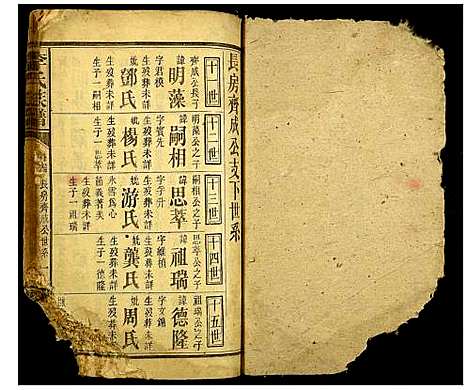 長房齊成公支下世系
十一世
齊成公長子
諱明藻
字君模
生歿葬未詳
妣鄧氏
生歿葬未詳
生子一嗣相
十二世
明藻公之子
諱嗣相
字賓先
生歿葬未詳
妣楊氏
生歿葬未詳
生子一思萃
十三世
嗣相公之子
諱思萃
字孚升
生歿葬未詳
妣游氏
生歿葬未詳
生子一祖瑞
十四世
思萃公之子
諱祖瑞
字維楨
生歿葬未詳
妣龔氏
生歿葬未詳
生子一德隆
十五世
祖瑞公之子
諱德隆
字文錦
生歿葬未詳
妣周氏
生歿葬未詳
氏宗譜
長房齊成公世系 一